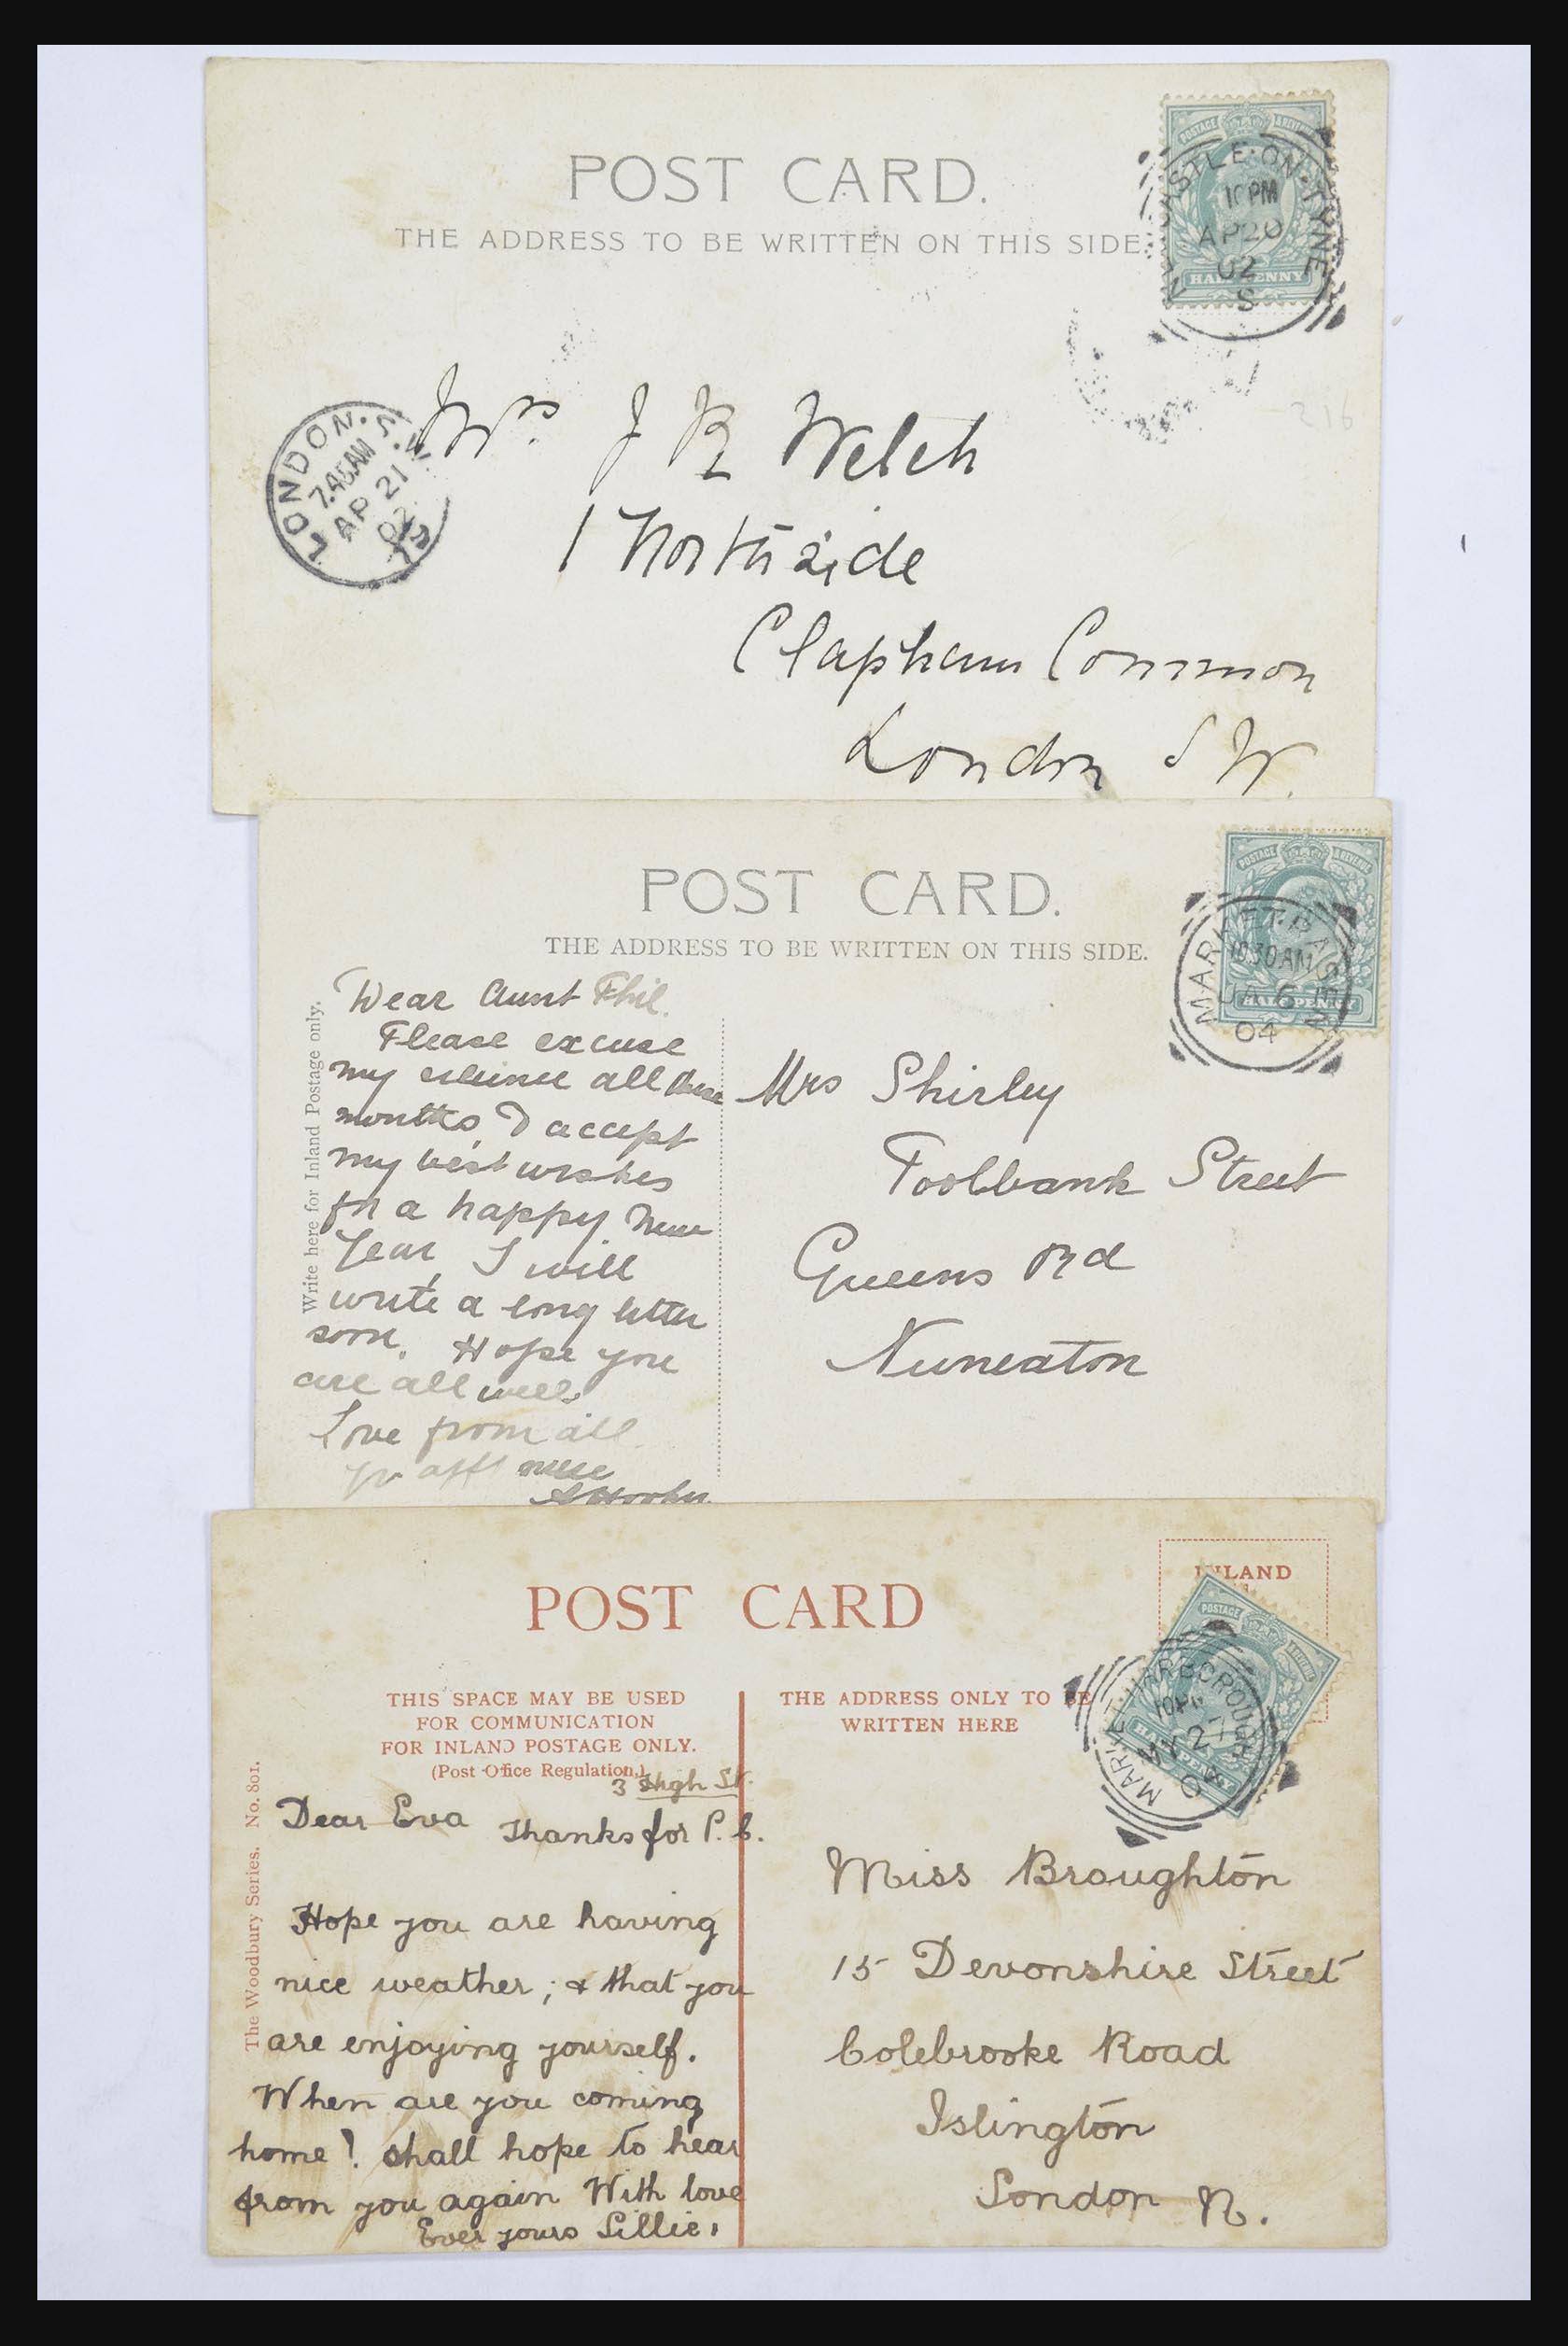 POST CARD.
THE ADDRESS TO BE WRITTEN ON THIS SIDE
POSTAGE & REVENUE
HALFPENNY
CASTLE·ON·TYNE
10 PM
AP 20
02
S
LONDON. S.W
7.45AM
AP 21
02
Mrs J R Welch
1 Northside
Clapham Common
London S W.
216
POST CARD.
THE ADDRESS TO BE WRITTEN ON THIS SIDE.
POSTAGE & REVENUE
HALFPENNY
MARKET·RASEN
10 30 AM
JA 6
04
Write here for Inland Postage only.
Dear Aunt Phil.
Please excuse
my silence all these
months, & accept
my best wishes
for a happy New
Year, I will
write a long letter
soon. Hope you
are all well
Love from all
yr afft niece
Mrs Shirley
Toolbank Street
Queens Rd
Nuneaton
POST CARD
INLAND
THIS SPACE MAY BE USED
FOR COMMUNICATION
FOR INLAND POSTAGE ONLY.
(Post Office Regulation.)
THE ADDRESS ONLY TO BE
WRITTEN HERE
POSTAGE & REVENUE
HALFPENNY
MARKET HARBOROUGH
10 PM
MY 27
04
The Woodbury Series. No. 801.
3 High St.
Dear Eva Thanks for P.C.
Hope you are having
nice weather; & that you
are enjoying yourself.
When are you coming
home? shall hope to hear
from you again With love
Ever yours Lillie.
Miss Broughton
15 Devonshire Street
Colebrooke Road
Islington
London N.